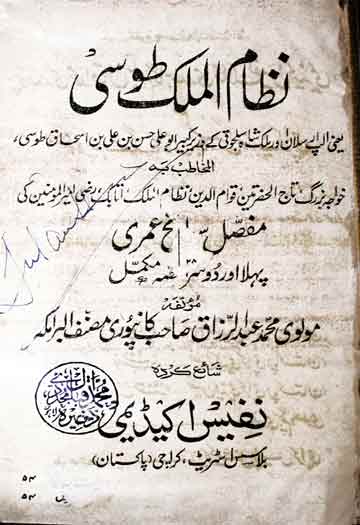 نظام الملک طوسی
یعنی الپ ارسلان اور ملک شاہ سلجوقی کے وزیر کبیر ابو علی حسن بن علی بن اسحاق طوسی،
المخاطب بہ
خواجہ بزرگ تاج الحضرتین قوام الدین نظام الملک اتابک رضی امیر المومنین کی
مفصل سوانح عمری
پہلا اور دوسرا حصہ مکمل
مؤلفہ
مولوی محمد عبدالرزاق صاحب کانپوری مصنف البرامکہ
شائع کردہ
نفیس اکیڈیمی
بلاسس اسٹریٹ، کراچی (پاکستان)
۵۴
۵۴